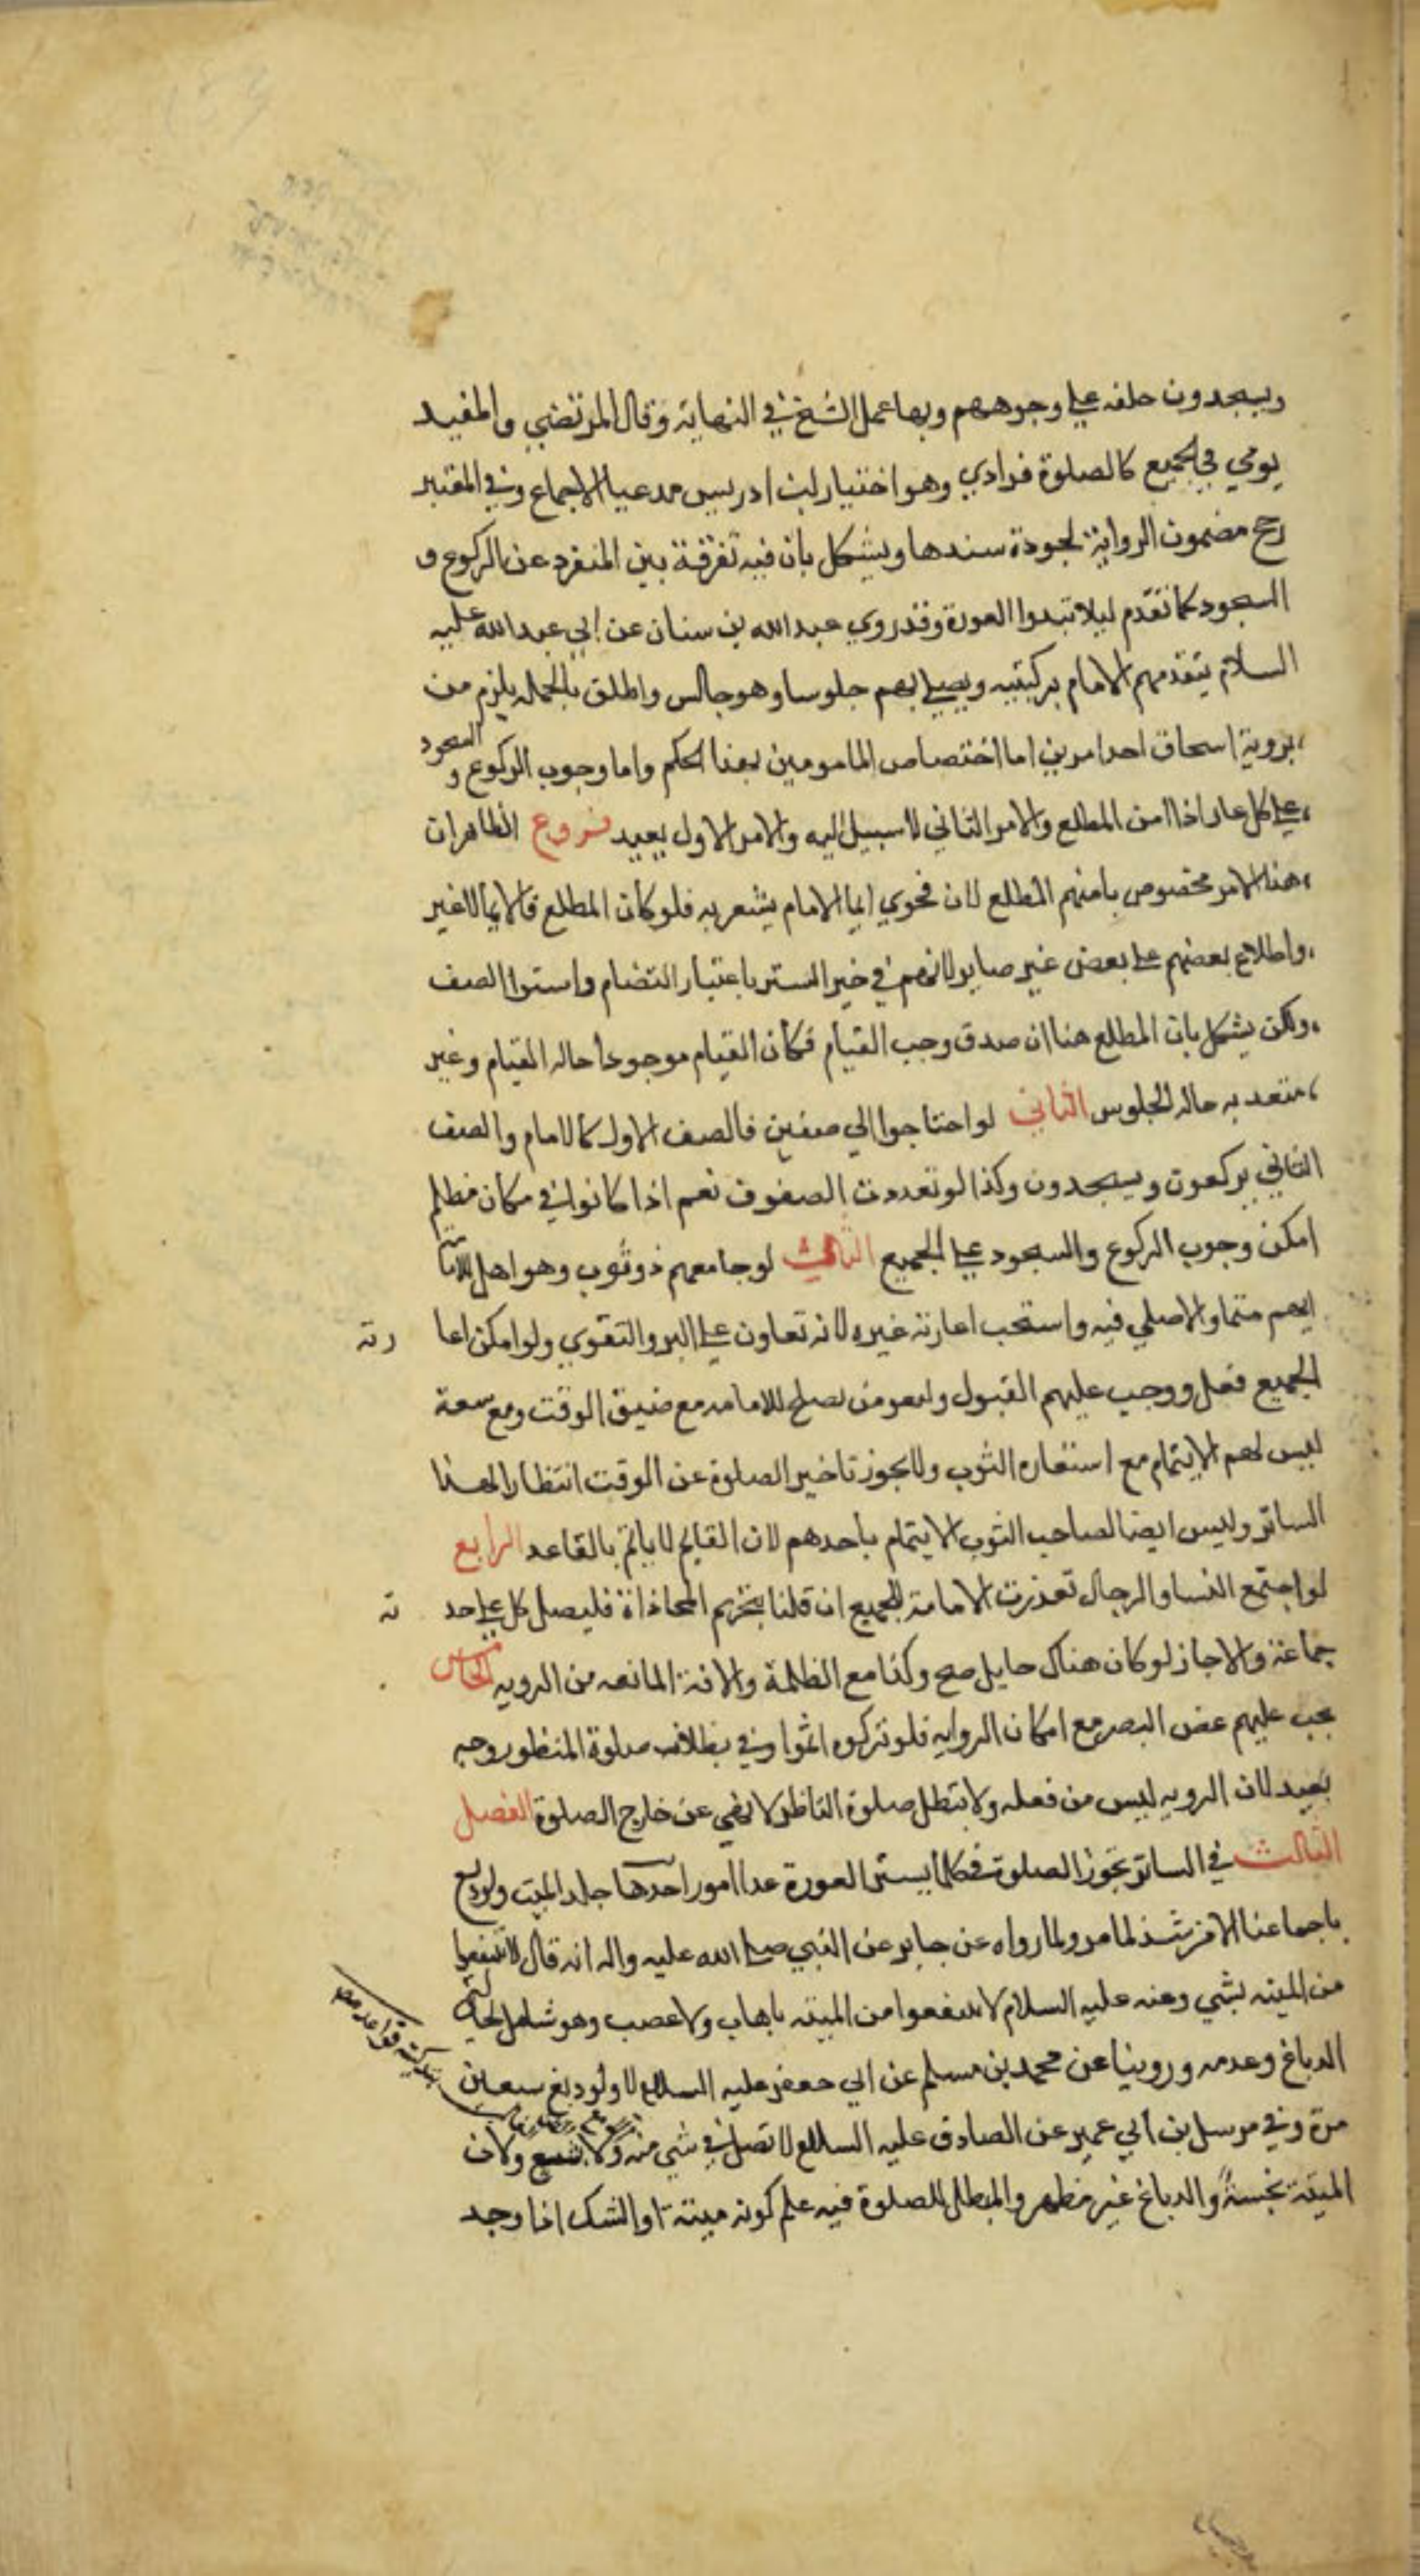 ويسجدون خلفه علي وجوههم وبها عمل الشيخ في النهاية وقال المرتضي والمفيد
يومي في الجميع كالصلوة فرادي وهو اختيار ابن ادريس مدعيا الاجماع وفي المعتبر
رجح مضمون الرواية لجودة سندها ويشكل بان فيه تفرقة بين المنفرد عن الركوع و
السجود كما تقدم ليلا تبدوا العورة وقد روي عبد الله بن سنان عن ابي عبد الله عليه
السلام يتقدمهم الامام بركبتيه ويصلي بهم جلوسا وهو جالس واطلق بالجمله يلزم من
بروية اسحاق احد امرين اما اختصاص المامومين بهذا الحكم واما وجوب الركوع و السجود
علي كل عار اذا امن المطلع والامر الثاني لا سبيل اليه والامر الاول بعيد فروع الظاهر ان
هذا الامر مخصوص بامنهم المطلع لان فحوي ايما الامام يشعر به فلو كان المطلع فالايما لا غير
واطلاع بعضهم علي بعض غير صاير لانهم في خير الستر باعتبار التضام واستوا الصف
ولكن يشكل بان المطلع هنا ان صدق وجب القيام فكان القيام موجودا حاله القيام وغير
متعد به حاله الجلوس الثاني لو احتاجوا الي صفين فالصف الاول كالامام والصف
الثاني يركعون ويسجدون وكذا لو تعددت الصفوف نعم اذا كانوا في مكان مظلم
امكن وجوب الركوع والسجود علي الجميع الثالث لو جامعهم ذو ثوب وهو اهل للامامة
امهم متما والاصلي فيه واستحب اعارته غيره لانه تعاون علي البر والتقوي ولو امكن اعا رته
الجميع فعل ووجب عليهم القبول وليعر من يصلح للامامه مع ضيق الوقت ومع سعة
ليس لهم الايتمام مع استعاره الثوب ولا يجوز تاخير الصلوة عن الوقت انتظارا لهذا
الساتر وليس ايضا لصاحب الثوب الايتمام باحدهم لان القايم لا ياتم بالقاعد الرابع
لو اجتمع النسا والرجال تعذرت الامامة للجميع ان قلنا بتحريم المحاذاة فليصل كل علي حد ته
جماعة والاجاز لو كان هناك حايل صح وكذا مع الظلمة والافة المانعه من الرويه الخامس
يجب عليهم غض البصر مع امكان الروايه فلو تركوه اثموا وفي بطلان صلوة المنظور وجه
بعيد لان الرويه ليس من فعله ولا تبطل صلوة الناظر لانه نهي عن خارج الصلوة الفصل
الثالث في الساتر تجوز الصلوة في كلما يستر العورة عدا امور احدها جلد الميت ولو دبغ
باجماعنا الا من شذ لما مر ولما رواه عن جابر عن النبي صلي الله عليه واله انه قال لا تنتفعوا
من الميته بشي وعنه عليه السلام لا تنتفعوا من الميته باهاب ولا عصب وهو شامل لحالتي
الدباغ وعدمه وروينا عن محمد بن مسلم عن ابي جعفر عليه السلام لا ولو دبغ سبعين
مرة وفي مرسل بن ابي عمير عن الصادق عليه السلام لا تصل في شي منه ولا شسع ولان
الميتة نجسة والدباغ غير مطهر والمبطل للصلوة فيه علم كونه ميتة او الشك اذا وجد